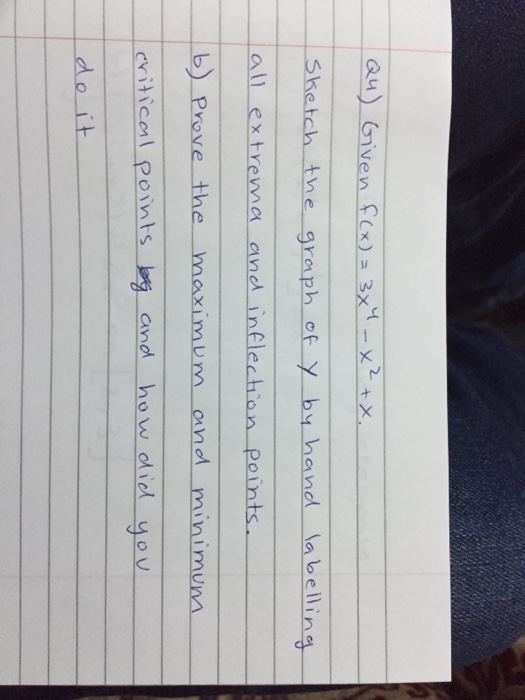 Q4) Given f(x) = 3x⁴ - x² + x.
Sketch the graph of y by hand labelling
all extrema and inflection points.
b) Prove the maximum and minimum
critical points and how did you
do it